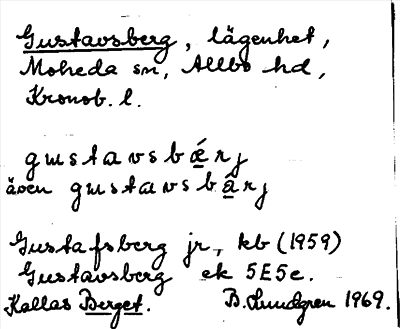 Gustavsberg, lägenhet,
Moheda sn, Allbo hd,
Kronob. l.
gustavsbǽrj
även gustavsbârj
Gustafsberg jr, kb (1959)
Gustavsberg ek 5E5e.
Kallas Berget. B. Lundgren 1969.